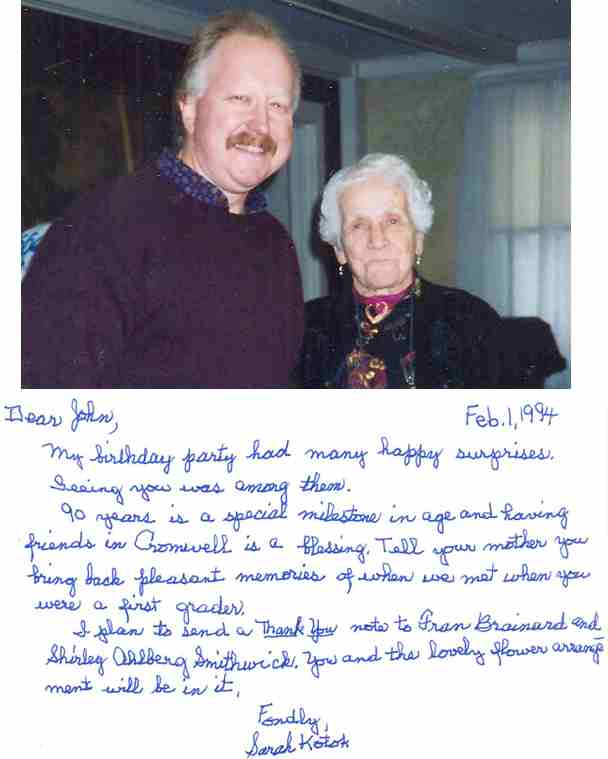 Dear John,
Feb. 1, 1994
My birthday party had many happy surprises.
Seeing you was among them.
90 years is a special milestone in age and having
friends in Cromwell is a blessing. Tell your mother you
bring back pleasant memories of when we met when you
were a first grader.
I plan to send a Thank You note to Fran Brainard and
Shirley Ahlberg Smithwick. You and the lovely flower arrange
ment will be in it.
Fondly,
Sarah Kotok